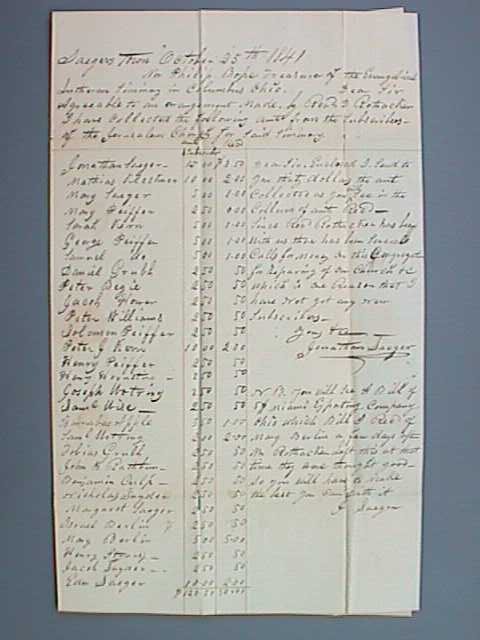 Saegers Town October 25th 1841
Mr Philip Bope Treasurer of the Evangelical
Lutheran Siminary in Columbus Ohio. Dear Sir
Agreeable to an arrangement Made by Revd Rothacker
I have Collected the following amts from the Subscribers
of the Jerusalem Church for Said Siminary
amt Subscribd Recd
Jonathan Saeger 15.00 7.50
Mathias Flestner 10.00 2.00
May Saeger 5.00 1.00
May Peiffer 2.50
Sarah Kern 5.00 1.00
George Peiffer 5.00 1.00
Samuel do 5.00 1.00
Daniel Grubb 2.50 50
Peter 2.50 50
Jacob Flower 2.50 50
Peter Williams 2.50 50
Solomon Peiffer 2.50 50
Peter J Kern 10.00 2.00
Henry Peiffer 2.50 50
Henry 2.50 50
Joseph Wotring 2.50 50
Saml Wise 2.50 50
Apple 1.00
Saml Wotring 2.00
Tobias Grubb 2.50 50
John R 2.50 50
Benjamin Culp 2.50 50
Nicholas Snyder 2.50 50
Margaret Saeger 2.50 50
Israel Berlin 2.50 50
May Berlin 5.00 5.00
Henry 2.50 50
Jacob Snyder 2.50 50
Edw Saeger 10.00 2.00
Dear Sir. Enclosed I Send to
you thirty dollars the amt
Collected as you may See in the
Collumn of amt Recd
Since Revd Rothacker has been
With us there has been Several
Calls for Money in this Congregation
for Repairing of our Church &c
which is one Reason that I
have Not got any new
Subscribers
Yours &c
Jonathan Saeger
N B. You will See A Bill of
5$ Miami Exporting Company
Ohio which Bill I Recd of
May Berlin a few days after
Mr Rothacker left this at that
time they were thought good
So you will have to Make
the best you Can with it
J Saeger